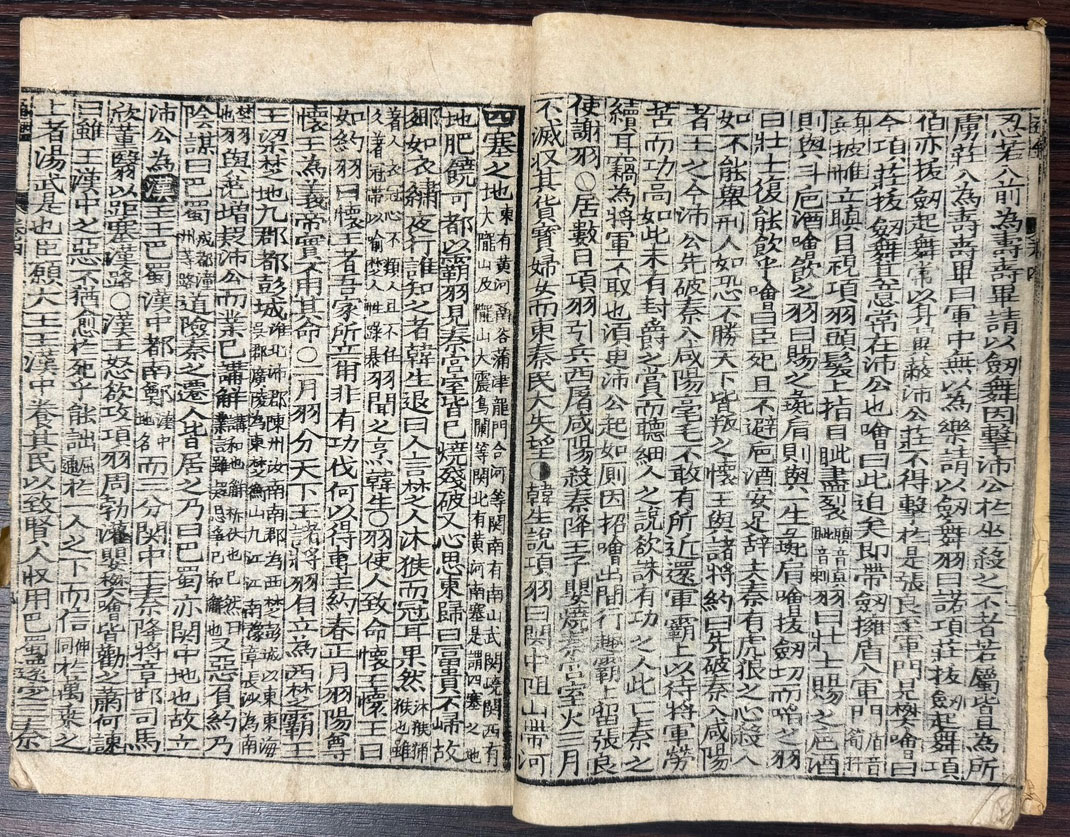 忍若入前為壽壽畢請以劒舞因擊沛公於坐殺之不者若屬皆且為所
虜莊入為壽壽畢曰軍中無以為樂請以劒舞羽曰諾項莊拔劒起舞項
伯亦拔劒起舞常以身翼蔽沛公莊不得擊於是張良至軍門見樊噲曰
今項莊拔劒舞其意常在沛公也噲曰此迫矣即帶劒擁盾入軍門
披帷立瞋目視項羽頭髮上指目眦盡裂羽曰壯士賜之巵酒
則與斗巵酒噲飮之羽曰賜之彘肩則與一生彘肩噲拔劒切而啗之羽
曰壯士復能飮乎噲曰臣死且不避巵酒安足辞夫秦有虎狼之心殺人
如不能舉刑人如恐不勝天下皆叛之懷王與諸將約曰先破秦入咸陽
者王之今沛公先破秦入咸陽毫毛不敢有所近還軍霸上以待將軍勞
苦而功高如此未有封爵之賞而聽細人之說欲誅有功之人此亡秦之
續耳竊為將軍不取也須臾沛公起如厠因招噲出間行趣霸上留張良
使謝羽○居數日項羽引兵西屠咸陽殺秦降王子嬰燒秦宮室火三月
不滅収其貨寶婦女而東秦民大失望○韓生說項羽曰関中阻山帶河
四塞之地東有黄河南谷蒲津龍門合河等関南有南山武関嶢関西有大隴山及隴山大震烏闌等関北有黄河南塞是謂四塞之地
地肥饒可都以霸羽見秦宮室皆已燒殘破又心思東歸曰冨貴不歸故
鄕如衣繡夜行誰知之者韓生退曰人言楚人沐猴而冠耳果然沐猴獼猴也雖
著人衣冠心不類人且不任久著冠帶以喻楚人性躁暴羽聞之烹韓生○羽使人致命懷王懷王曰
如約羽曰懷王者吾家所立爾非有功伐何以得專主約春正月羽陽尊
懷王為義帝實不用其命○二月羽分天下王諸將羽自立為西楚霸王
王梁楚地九郡都彭城
羽與范增疑沛公而業已講解又惡負約乃
陰謀曰巴蜀道險秦之遷人皆居之乃曰巴蜀亦関中地也故立
沛公為漢王王巴蜀漢中都南鄭漢中地名而三分関中王秦降將章邯司馬
欣董翳以距塞漢路○漢王怒欲攻項羽周勃灌嬰樊噲皆勸之蕭何諫
曰雖王漢中之惡不猶愈於死乎能詘於一人之下而信於萬乘之
上者湯武是也臣願大王王漢中養其民以致賢人収用巴蜀還定三秦